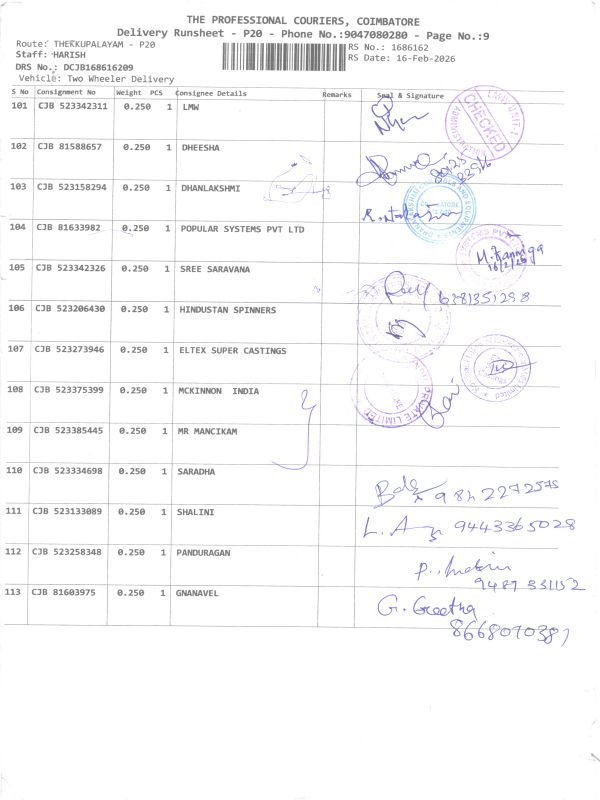 THE PROFESSIONAL COURIERS, COIMBATORE
Delivery Runsheet - P20 - Phone No.:9047080280 - Page No.:9
Route: THEKKUPALAYAM - P20
RS No.: 1686162
Staff: HARISH
RS Date: 16-Feb-2026
DRS No.: DCJB168616209
Vehicle: Two Wheeler Delivery
S No Consignment No Weight PCS Consignee Details Remarks Seal & Signature
101 CJB 523342311 0.250 1 LMW
LMW UNIT-1
CHECKED
102 CJB 81588657 0.250 1 DHEESHA
103 CJB 523158294 0.250 1 DHANLAKSHMI
104 CJB 81633982 0.250 1 POPULAR SYSTEMS PVT LTD
M. Kanniga
16/2/26
105 CJB 523342326 0.250 1 SREE SARAVANA
6381351298
106 CJB 523206430 0.250 1 HINDUSTAN SPINNERS
107 CJB 523273946 0.250 1 ELTEX SUPER CASTINGS
108 CJB 523375399 0.250 1 MCKINNON INDIA
109 CJB 523385445 0.250 1 MR MANCIKAM
110 CJB 523334698 0.250 1 SARADHA
111 CJB 523133089 0.250 1 SHALINI
9443365028
112 CJB 523258348 0.250 1 PANDURAGAN
113 CJB 81603975 0.250 1 GNANAVEL
G. Greetha
8668070381